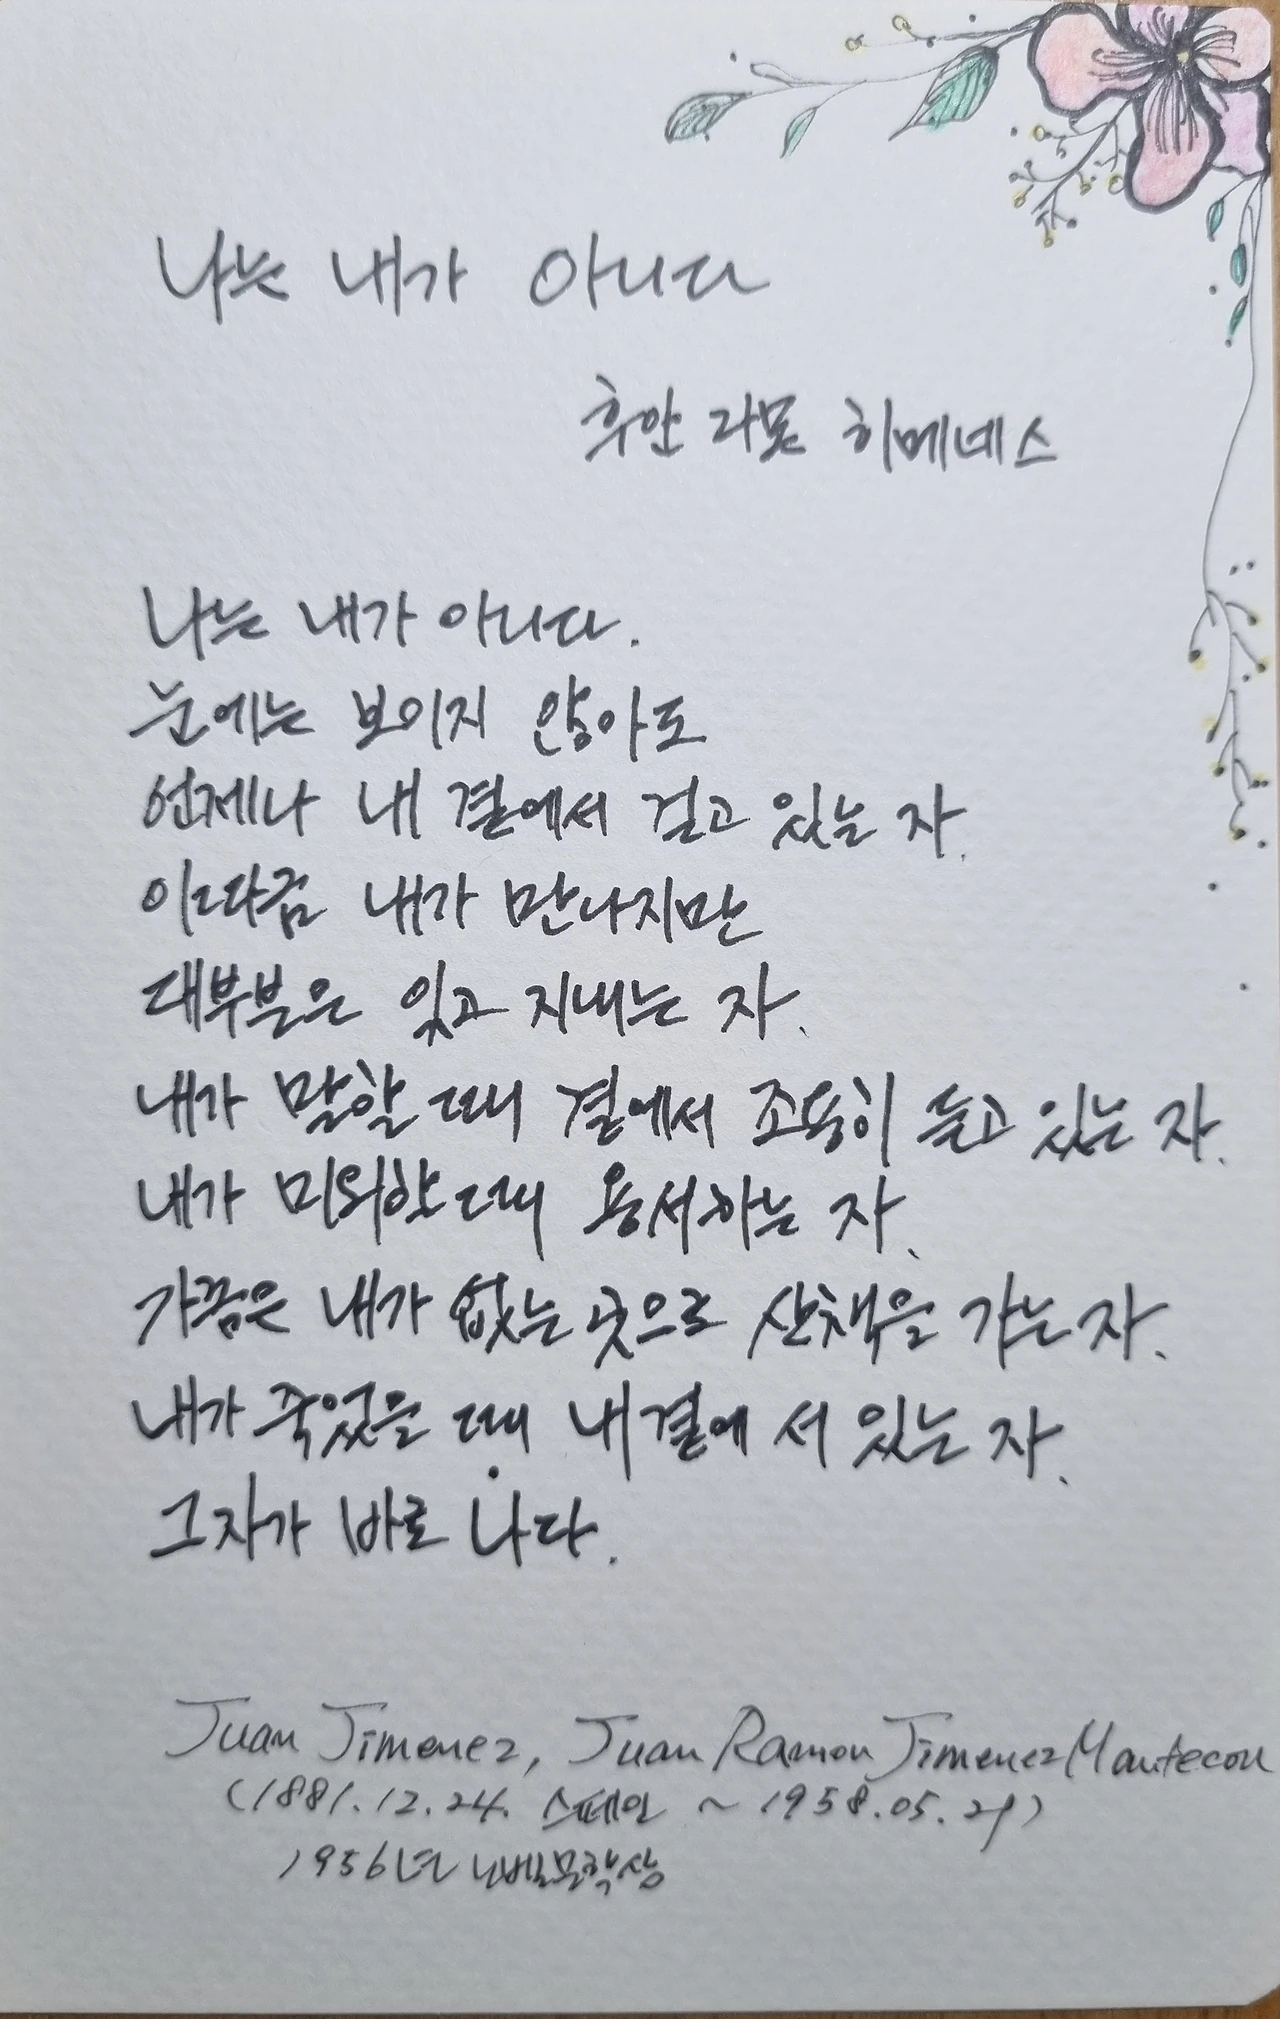 나는 내가 아니다
후안 라몬 히메네스
나는 내가 아니다.
눈에는 보이지 않아도
언제나 내 곁에서 걸고 있는 자.
이따금 내가 만나지만
대부분은 잊고 지내는 자.
내가 말할 때 곁에서 조용히 듣고 있는 자.
내가 미워할 때 용서하는 자.
가끔은 내가 없는 곳으로 산책을 가는 자.
내가 죽었을 때 내 곁에 서 있는 자.
그 자가 바로 나다.
Juan Jimenez, Juan Ramon Jimenez Mantecon
(1881.12.24. 스페인 ~ 1958.05.29)
1956년 노벨문학상